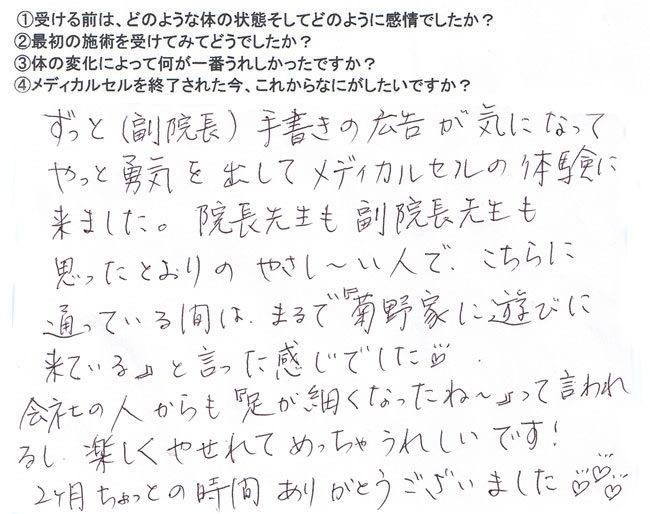 ①受ける前は、どのような体の状態そしてどのように感情でしたか？
②最初の施術を受けてみてどうでしたか？
③体の変化によって何が一番うれしかったですか？
④メディカルセルを終了された今、これからなにがしたいですか？
ずっと（副院長）手書きの広告が気になって
やっと勇気を出してメディカルセルの体験に
来ました。院長先生も副院長先生も
思ったとおりのやさし〜い人で、こちらに
通っている間は、まるで『菊野家に遊びに
来ている』と言った感じでした♡.
会社の人からも『足が細くなったね〜』って言われ
るし、楽しくやせれてめっちゃうれしいです！
2ヶ月ちょっとの時間ありがとうございました♡♡♡